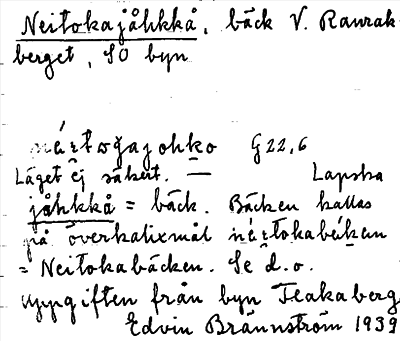 Neitokajåhkkå, bäck V. Ranrak-
berget, SO byn
nértoǧajohko G 22,6
Läget ej säkert. — Lapska
jåhkkå = bäck. Bäcken kallas
på överkalixmål nértokabékən
= Neitokabäcken. Se d.o.
Uppgiften från byn Teakaberg
Edvin Brännström 1939